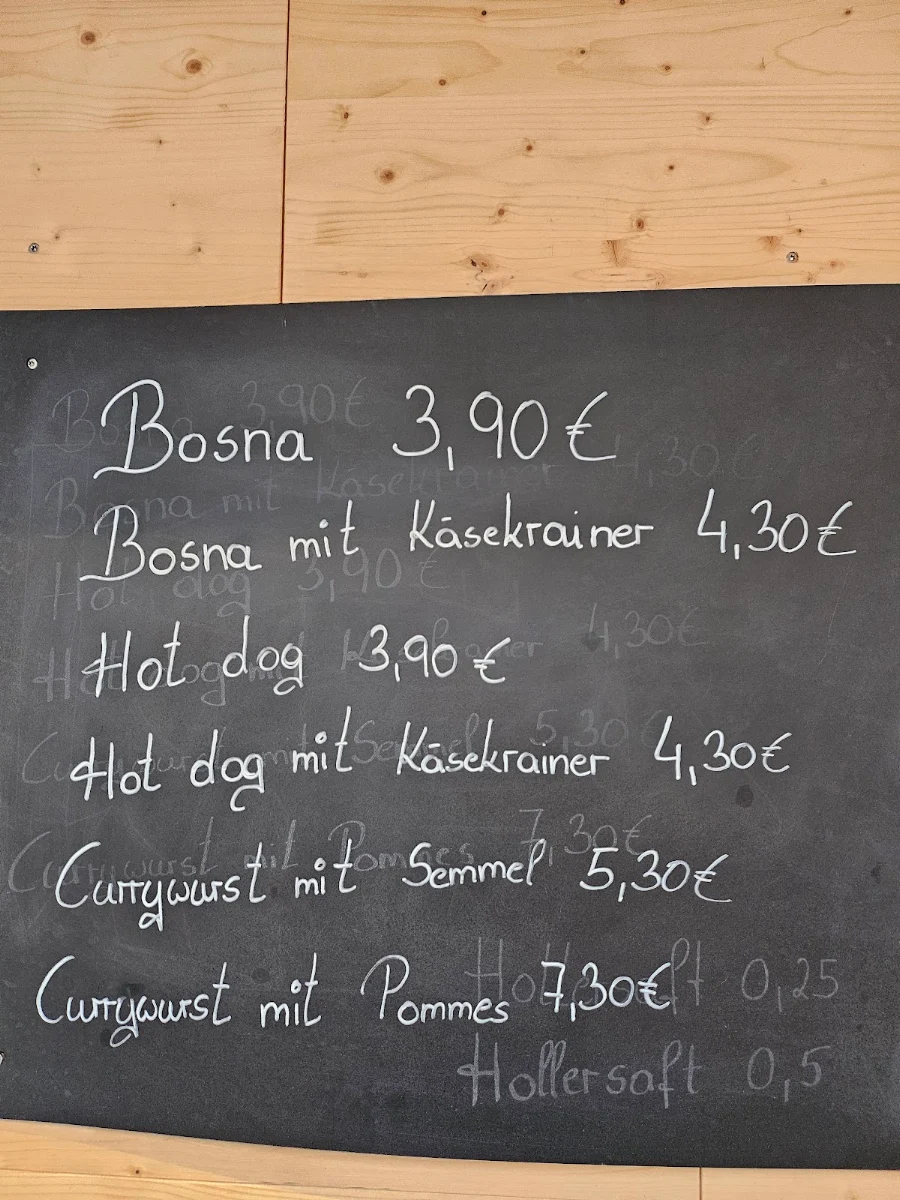 Bosna 3,90€
Bosna mit Käsekrainer 4,30€
Hot dog 3,90€
Hot dog mit Käsekrainer 4,30€
Currywurst mit Semmel 5,30€
Currywurst mit Pommes 7,30€
Hollersaft 0,25
Hollersaft 0,5